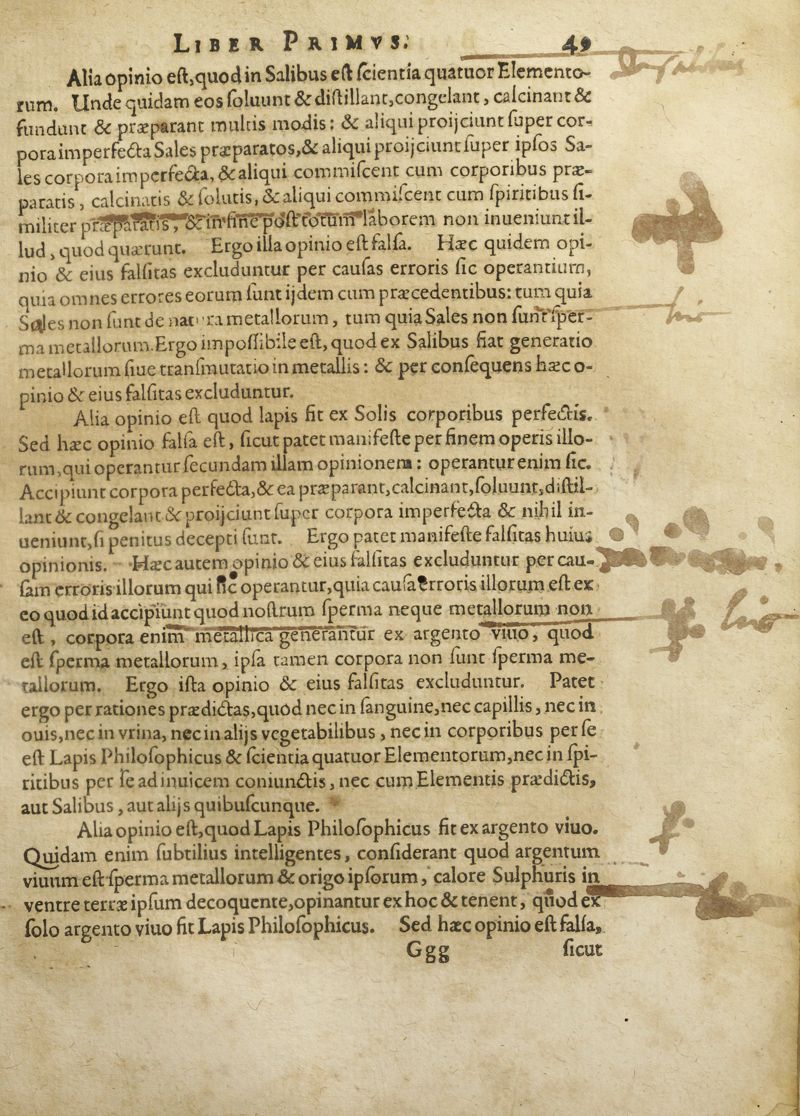 LIBER PRIMVS. 49
Alia opinio eſt,quod in Salibus eſt ſcientia quatuor Elemento-
rum. Unde quidam eos ſoluunt & diſtillant,congelant, calcinant &
fundunt & præparant multis modis: & aliqui proijciunt ſuper cor-
pora imperfecta Sales præparatos,& aliqui proijciunt ſuper ipſos Sa-
les corpora imperfecta, & aliqui commiſcent cum corporibus præ-
paratis, calcinatis & ſolutis, & aliqui commiſcent cum ſpiritibus ſi-
militer præparatis, & in fine poſt totum laborem non inueniunt il-
lud, quod quærunt. Ergo illa opinio eſt falſa. Hæc quidem opi-
nio & eius falſitas excluduntur per cauſas erroris ſic operantium,
quia omnes errores eorum ſunt ijdem cum præcedentibus: tum quia
Sales non ſunt de natura metallorum, tum quia Sales non ſunt ſper-
ma metallorum.Ergo impoſſibile eſt, quod ex Salibus fiat generatio
metallorum ſiue tranſmutatio in metallis: & per conſequens hæc o-
pinio & eius falſitas excluduntur.
Alia opinio eſt quod lapis fit ex Solis corporibus perfectis.
Sed hæc opinio falſa eſt, ſicut patet manifeſte per finem operis illo-
rum,qui operantur ſecundam illam opinionem: operantur enim ſic.
Accipiunt corpora perfecta,& ea præparant,calcinant,ſoluunt,diſtil-
lant & congelant & proijciunt ſuper corpora imperfecta & nihil in-
ueniunt,ſi penitus decepti ſunt. Ergo patet manifeſte falſitas huius
opinionis. Hæc autem opinio & eius falſitas excluduntur per cau-
ſam erroris illorum qui ſic operantur,quia cauſa erroris illorum eſt ex
eo quod id accipiunt quod noſtrum ſperma neque metallorum non
eſt, corpora enim metallica generantur ex argento viuo, quod
eſt ſperma metallorum, ipſa tamen corpora non ſunt ſperma me-
tallorum. Ergo iſta opinio & eius falſitas excluduntur. Patet
ergo per rationes prædictas,quod nec in ſanguine,nec capillis, nec in
ouis,nec in vrina, nec in alijs vegetabilibus, nec in corporibus per ſe
eſt Lapis Philoſophicus & ſcientia quatuor Elementorum,nec in ſpi-
ritibus per ſe ad inuicem coniunctis, nec cum Elementis prædictis,
aut Salibus, aut alijs quibuſcunque.
Alia opinio eſt,quod Lapis Philoſophicus fit ex argento viuo.
Quidam enim ſubtilius intelligentes, conſiderant quod argentum
viuum eſt ſperma metallorum & origo ipſorum, calore Sulphuris in
ventre terræ ipſum decoquente,opinantur ex hoc & tenent, quod ex
ſolo argento viuo fit Lapis Philoſophicus. Sed hæc opinio eſt falſa,
Ggg ſicut